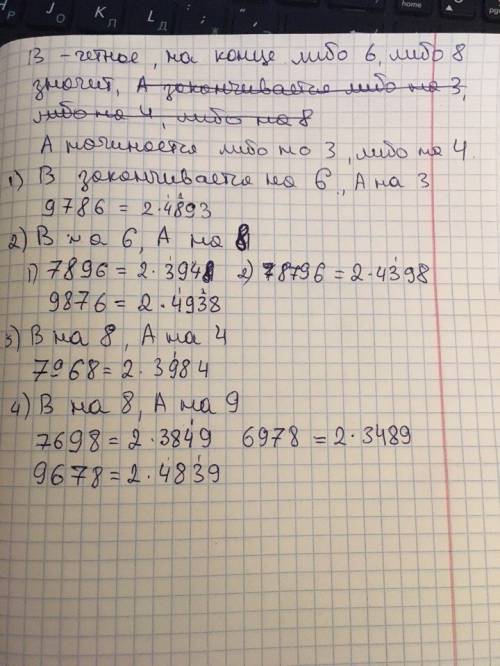 В - четное, на конце либо 6, либо 8
значит, А заканчивается либо на 3,
либо на 4, либо на 8
А начинается либо на 3, либо на 4.
1) В заканчивается на 6, А на 3
9786 = 2·4893
2) В на 6, А на 8
1) 7896 = 2·3948 2) 78796 = 2·4398
9876 = 2·4938
3) В на 8, А на 4
7968 = 2·3984
4) В на 8, А на 9
7698 = 2·3849 6978 = 2·3489
9678 = 2·4839
home